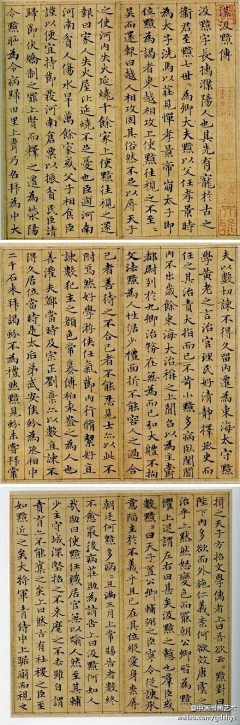 漢汲黯傳
汲黯字長孺濮陽人也其先有寵於古之
衛君至黯七世為卿大夫黯以父任孝景時
為太子洗馬以莊見憚孝景帝崩太子即
位黯為謁者東越相攻上使黯往視之不至
吳而還報曰越人相攻固其俗然不足以辱天子
之使河內失火延燒千餘家上使黯往視之還
報曰家人失火屋比延燒不足憂也臣過河南
河南貧人傷水旱萬餘家或父子相食臣
謹以便宜持節發河南倉粟以振貧民臣請
歸節伏矯制之罪上賢而釋之遷為滎陽
令黯恥為令病歸田里上聞乃召拜為中大
夫以數切諫不得久留內遷為東海太守黯
學黃老之言治官理民好清靜擇丞史而
任之其治責大指而已不苛小黯多病臥閨閤
內不出歲餘東海大治稱之上聞召以為主爵
都尉列於九卿治務在無為而已弘大體不拘
文法黯為人性倨少禮面折不能容人之過合
己者善待之不合己者不能忍見士亦以此不
附焉然好學游俠任氣節內行脩絜好直
諫數犯主之顏色常慕傅柏袁盎之為人也
善灌夫鄭當時及宗正劉棄亦以數直諫不
得久居位當時是太后弟武安侯蚡為丞相中
二千石來拜謁蚡不為禮然黯見蚡未嘗拜常
揖之天子方招文學儒者上曰吾欲云云黯對曰
陛下內多欲而外施仁義柰何欲效唐虞之
治乎上默然怒變色而罷朝公卿皆為黯
懼上退謂左右曰甚矣汲黯之戇也群臣或
數黯黯曰天子置公卿輔弼之臣寧令從諛承
意陷主於不義乎且已在其位縱愛身奈辱
朝廷何黯多病病且滿三月上常賜告者數終
不愈最後病莊助為請告上曰汲黯何如人
哉助曰使黯任職居官無以踰人然至其輔
少主守城深堅招之不來麾之不去雖自謂
賁育亦不能奪之矣上曰然古有社稷之臣至
如黯近之矣大將軍青侍中上踞廁而視之
@中国书画艺术
weibo.com/gdshw